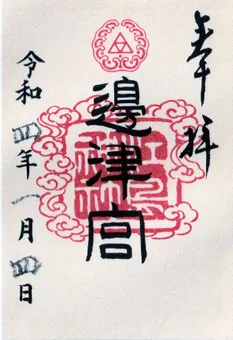 奉拝
邊津宮
令和四年一月四日